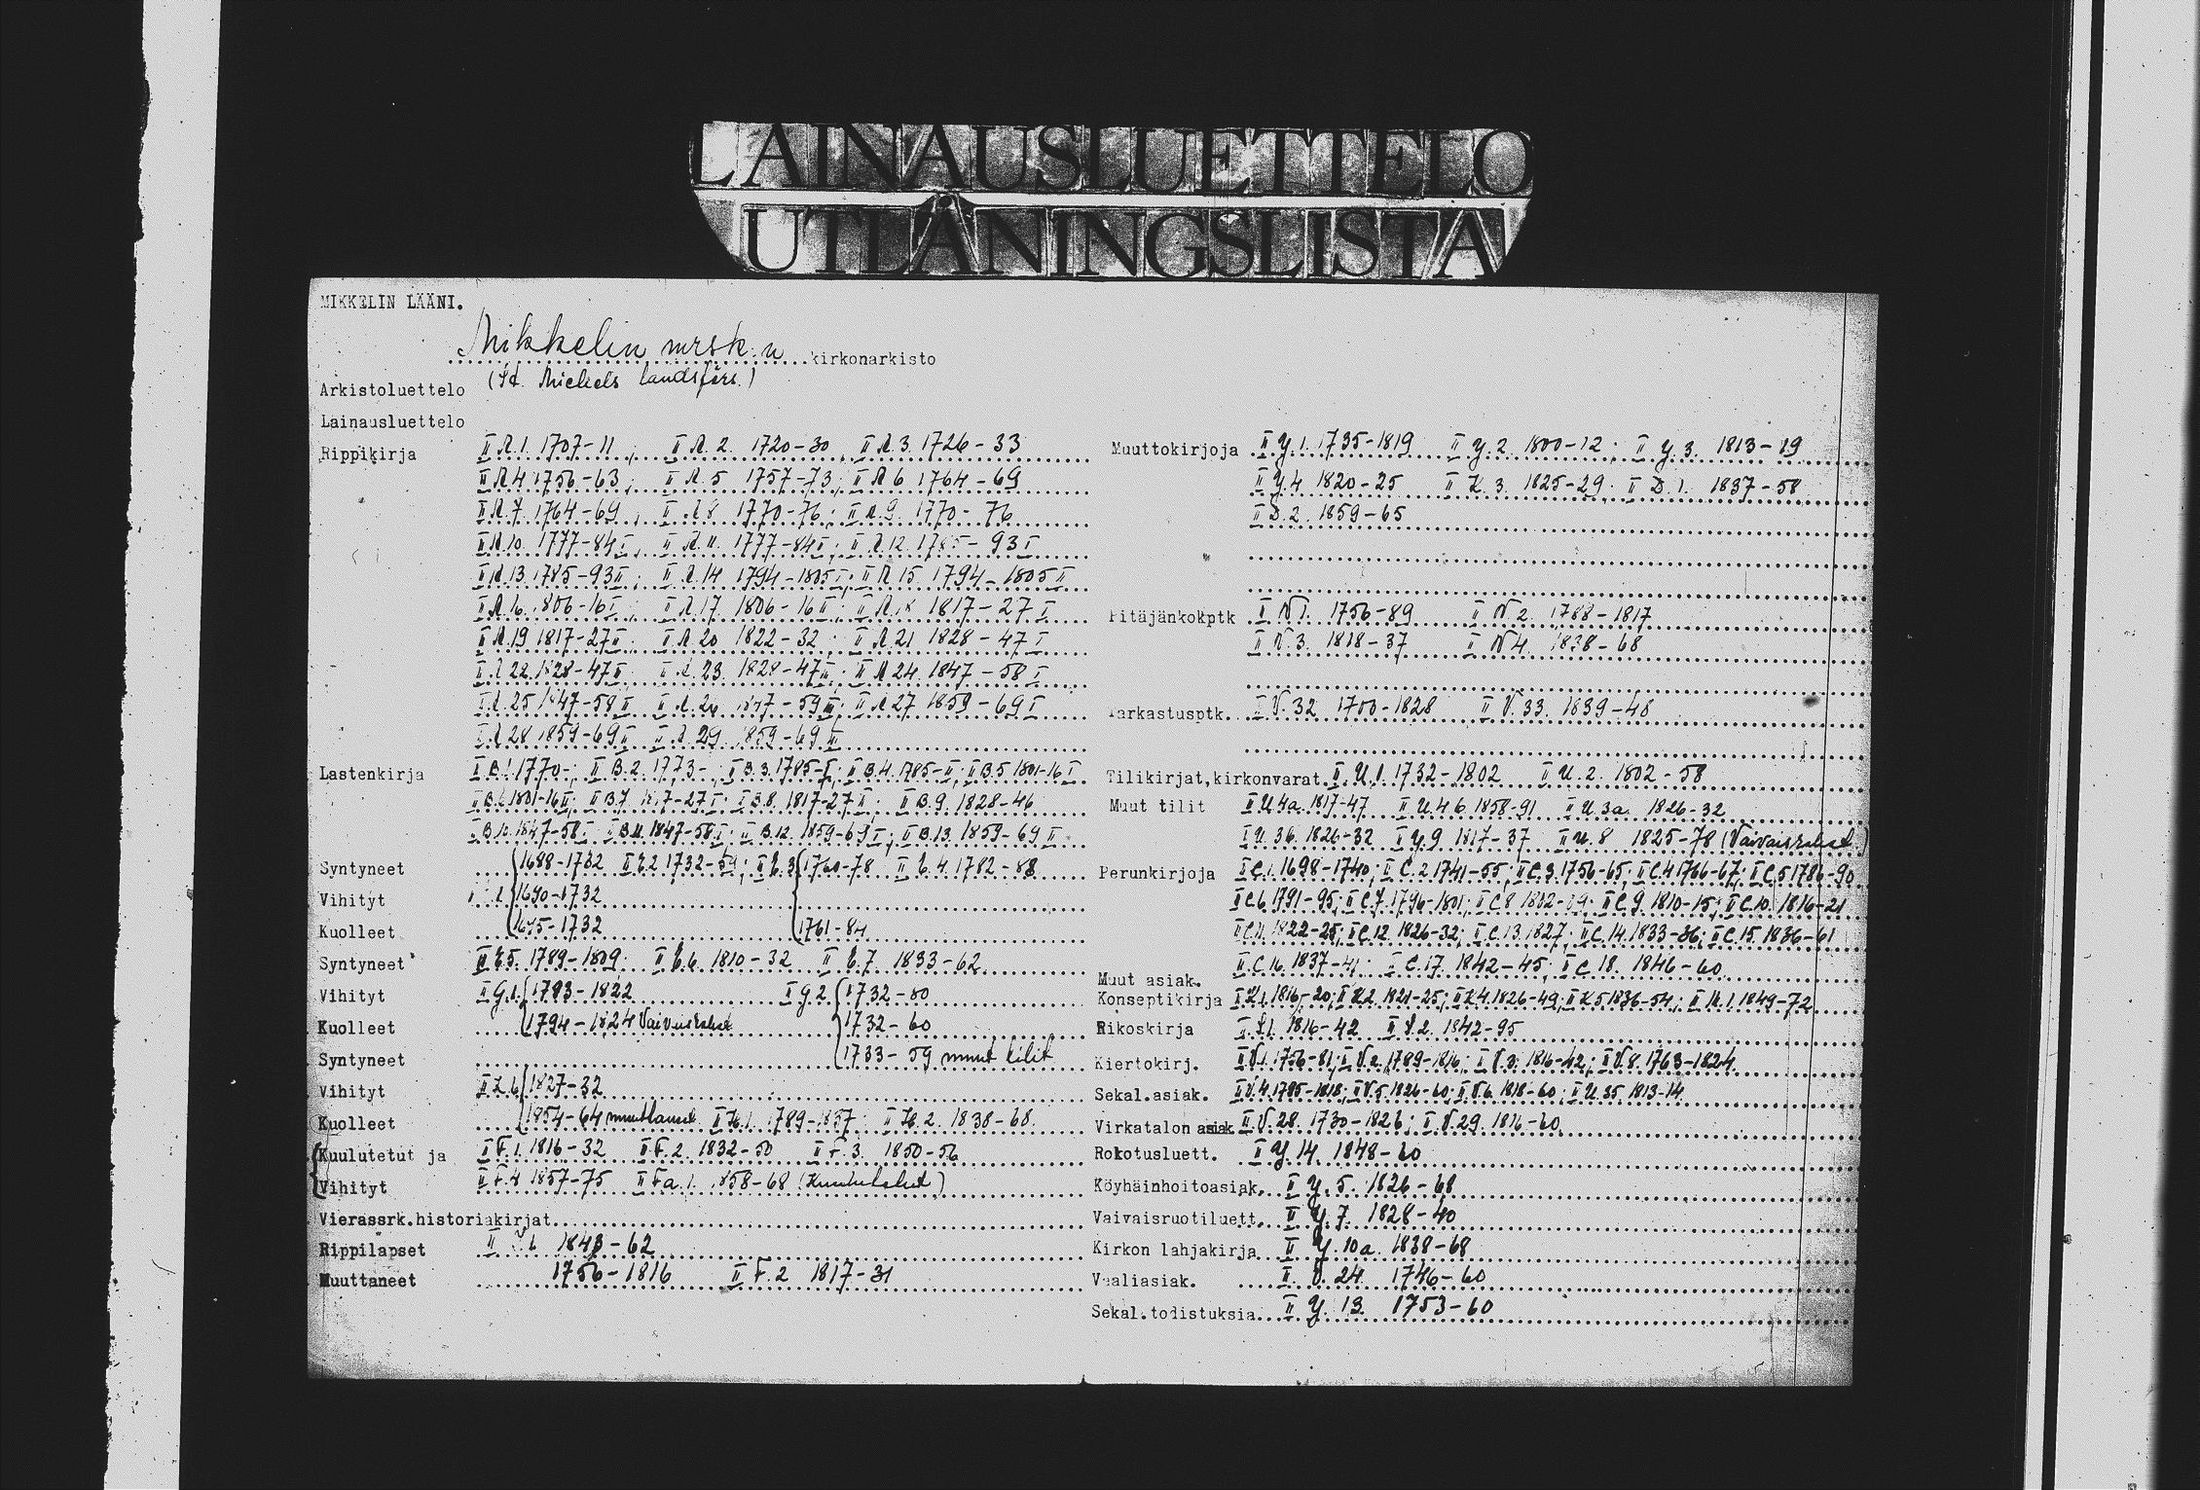 LAINAUSLUETTELO
UTLÅNINGSLISTA
MIKKELIN LÄÄNI.
Mikkelin mrsk:n kirkonarkisto
(St. Michels landsförs.)
Arkistoluettelo
Lainausluettelo
Rippikirja II A.1. 1707-11, II A.2. 1720-30, II A.3. 1726-33
II A.4 1756-63; II A.5 1757-73; II A 6 1764-69
II A.7. 1764-69; II A 8 1770-76; II A.9. 1770-76
II A.10. 1777-84 I, II A.11. 1777-84 II; II A.12. 1785-93 I
II A.13. 1785-93 II; II A.14. 1794-1805 I; II A 15. 1794-1805 II
II A.16. 1806-16 I; II A.17. 1806-16 II; II A.18 1817-27 I
II A.19 1817-27 II; II A 20 1822-32; II A 21 1828-47 I
II A 22. 1828-47 II; II A.23. 1828-47 III; II A 24. 1847-58 I
II A.25 1847-58 II II A.26 1847-59 III; II A 27 1859-69 I
II A 28 1859-69 II II A 29 1859-69 III
Lastenkirja II B.1. 1770-; II B.2. 1773-; II B.3. 1785-I; II B.4. 1785-II; II B.5. 1801-16 I
II B.6. 1801-16 II; II B.7. 1817-27 I; II B.8. 1817-27 II; II B.9. 1828-46
II B.10. 1847-58 I II B.11. 1847-58 II; II B.12. 1859-69 I; II B.13. 1859-69 II
Syntyneet 1688-1732 II E.2 1732-59; II E.3 1760-78 II E.4. 1782-88
Vihityt 1690-1732
Kuolleet 1695-1732 1761-84
Syntyneet II E.5. 1789-1809 II E.6. 1810-32 II E.7. 1833-62
Vihityt II G.1. 1793-1822 II G.2. 1732-80
Kuolleet 1794-1824 Vaivaisrahat 1732-60
Syntyneet 1733-59 muut tilit
Vihityt II K.6 1827-32
Kuolleet 1854-64 muuttaneet II H.1. 1789-1837; II H.2. 1838-68
Kuulutetut ja II F.1. 1816-32 II F.2. 1832-50 II F.3. 1850-56
Vihityt II F.4 1857-75 II Fa.1. 1858-68 (Kuulutukset)
Vierassrk.historiakirjat
Rippilapset 1843-62
Muuttaneet 1756-1816 II F.2 1817-31
Muuttokirjoja II Y.1. 1735-1819 II Y.2. 1800-12; II Y.3. 1813-19
II Y.4 1820-25 II K.3. 1825-29; II D.1. 1837-58
II D.2. 1859-65
Pitäjänkokptk II N 1. 1756-89 II N 2. 1788-1817
II N.3. 1818-37 II N 4. 1838-68
Tarkastusptk. II V.32 1700-1828 II V.33. 1839-48
Tilikirjat, kirkonvarat II U.1. 1732-1802 II U.2. 1802-58
Muut tilit II U 4a. 1817-47 II U.4b. 1858-91 II U 3a. 1826-32
II U.3b. 1826-32 II Y.9. 1817-37 II U.8 1825-78 (Vaivaisrahat)
Perunkirjoja II C.1. 1698-1740; II C.2 1741-55; II C.3. 1756-65; II C.4 1766-67; II C.5 1786-90
II C.6 1791-95; II C.7. 1796-1801; II C 8 1802-09; II C.9. 1810-15; II C.10. 1816-21
II C.11. 1822-25; II C.12. 1826-32; II C.13. 1827; II C.14. 1833-36; II C.15. 1836-61
II C.16. 1837-41; II C.17. 1842-45; II C 18. 1846-60
Muut asiak.
Konseptikirja II K.1. 1816-20; II K.2. 1821-25; II K.4. 1826-49; II K.5 1836-54; II M.1. 1849-72
Rikoskirja II S.1. 1816-42 II S.2. 1842-95
Kiertokirj. II V.1. 1756-81; II V.2. 1789-1816; II V.3. 1816-42; II V.8. 1763-1824
Sekal.asiak. II V.4. 1795-1818; II V.5 1826-60; II V.6. 1818-60; II U.35. 1813-14
Virkatalon asiak II V.28. 1730-1826; II V.29. 1816-60
Rokotusluett. II Y 14. 1848-60
Köyhäinhoitoasiak. II Y.5. 1826-68
Vaivaisruotiluett. II Y.7. 1828-40
Kirkon lahjakirja II Y.10a. 1838-68
Vaaliasiak. II V.24. 1746-60
Sekal.todistuksia II Y.13. 1753-60